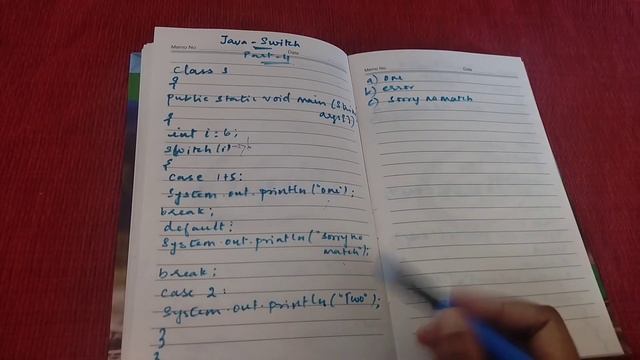 Java - Switch
Memo No.
Date
Part-4
class S
{
public static void main (String
args[])
{
int i=6;
switch(i)
{
case 1+5:
System.out.println("one");
break;
default:
System.out.println("Sorry no
match");
break;
case 2:
System.out.println("Two");
}
}
Memo No.
Date
a) one
b) error
c) Sorry no match